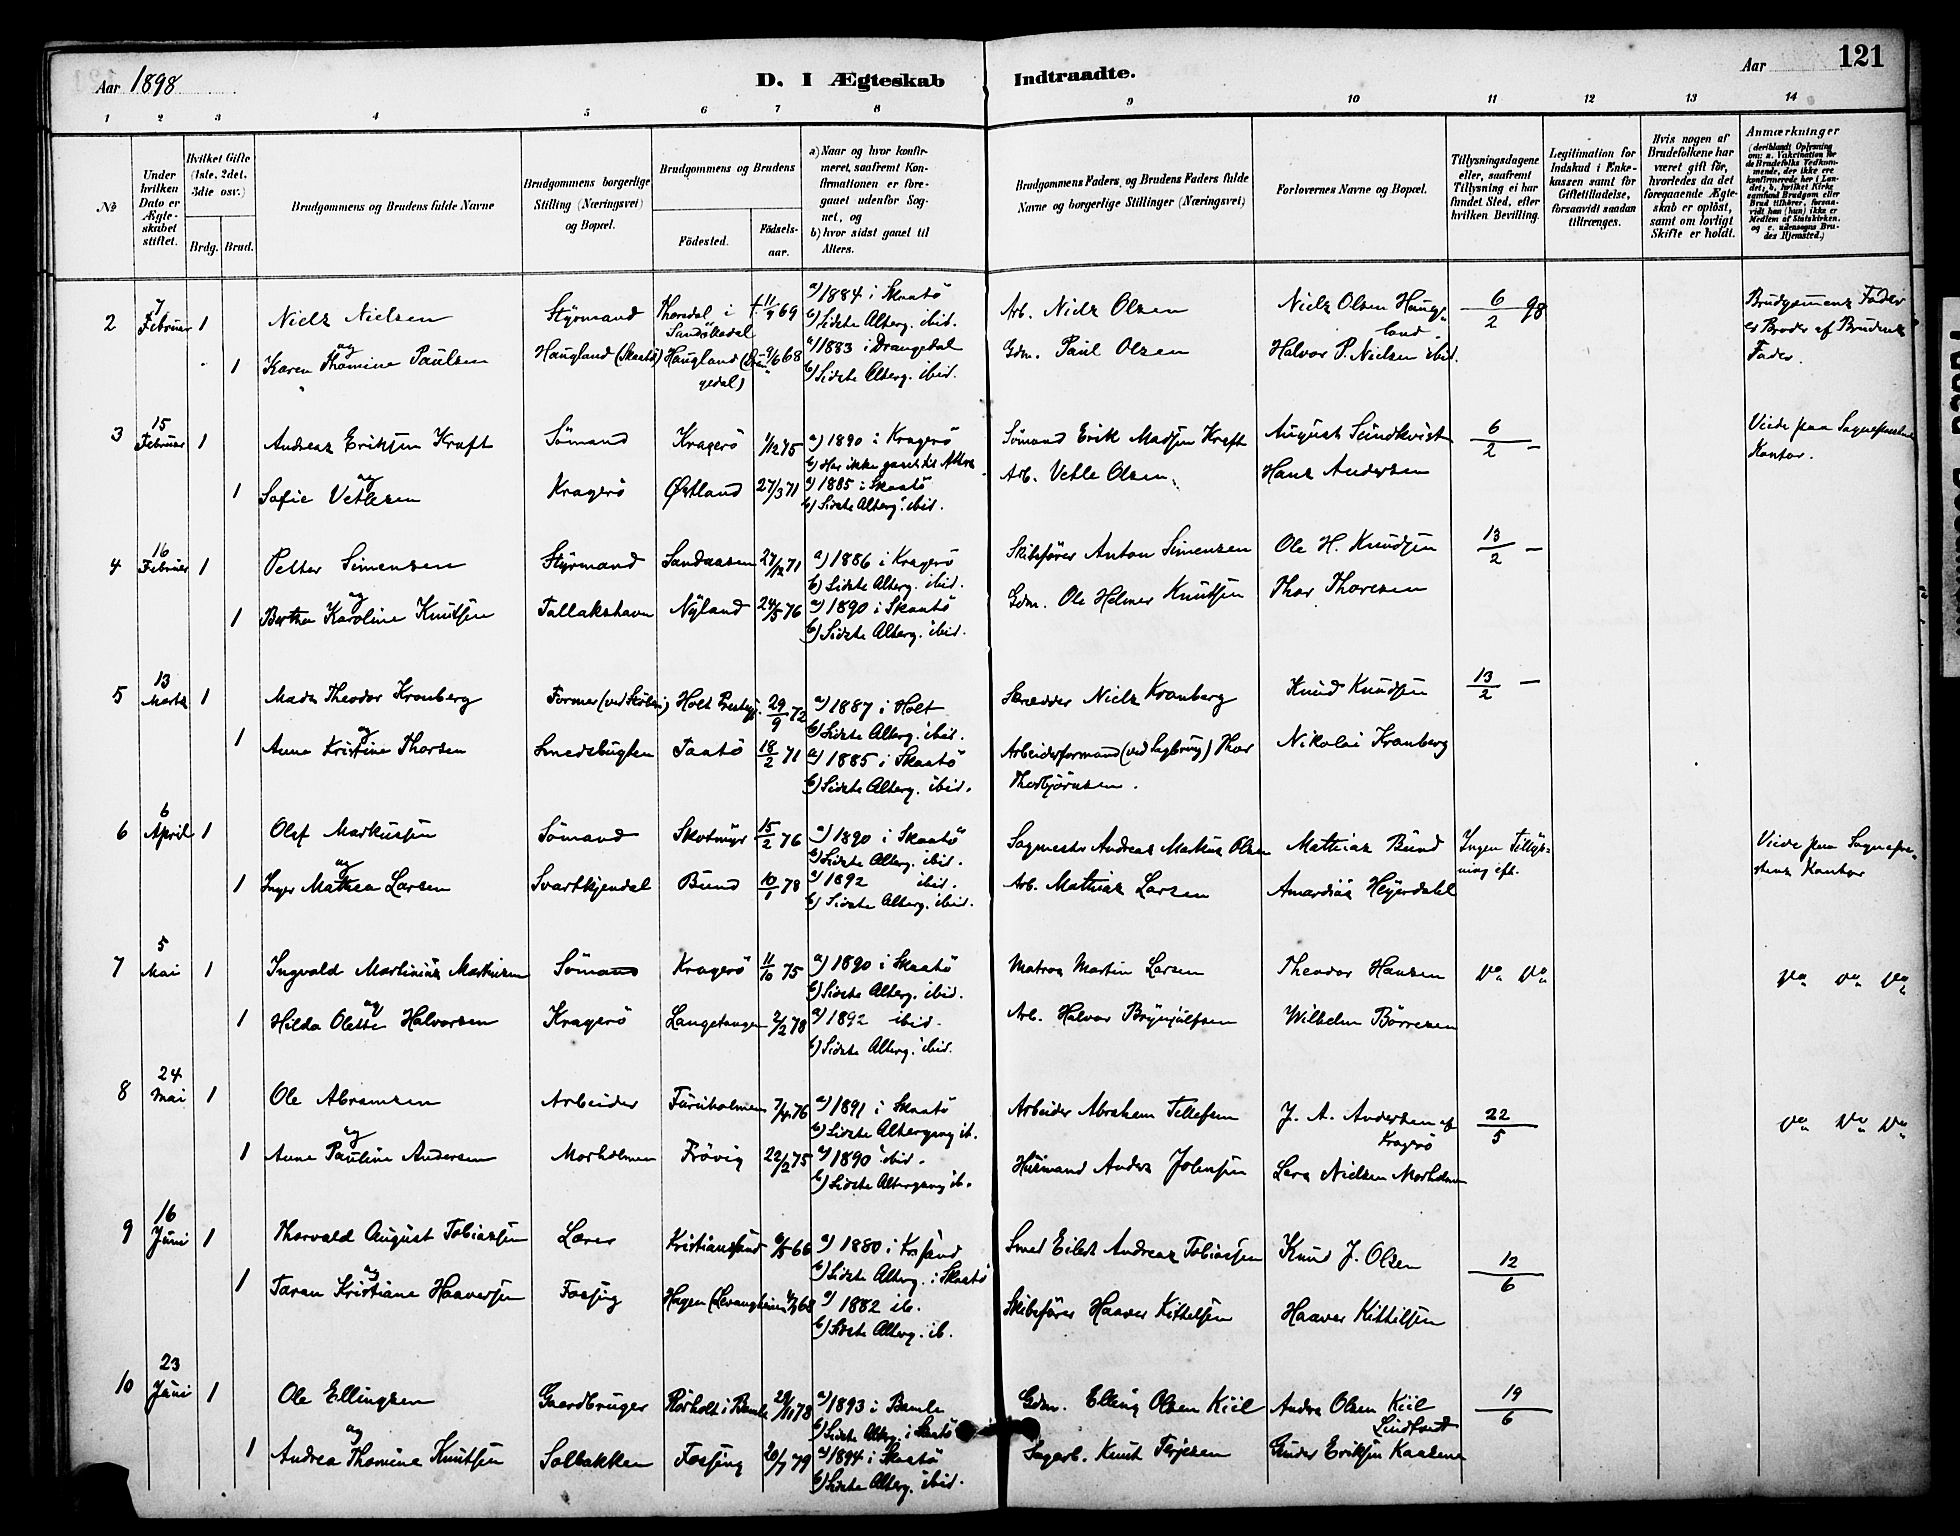 Aar 1898
D. I Ægteskab Indtraadte.
Aar
121
1 2 3 4 5 6 7 8 9 10 11 12 13 14
№
Under hvilken Dato er Ægteskabet stiftet.
Hvilket Gifte (1ste, 2det, 3die osv.)
Brdg. Brud.
Brudgommens og Brudens fulde Navne
Brudgommens borgerlige Stilling (Næringsvei) og Bopæl.
Brudgommens og Brudens
Fødested.
Fødselsaar.
a) Naar og hvor konfirmeret, saafremt Konfirmationen er foregaaet udenfor Sognet, og
b) hvor sidst gaaet til Alters.
Brudgommens Faders, og Brudens Faders fulde Navne og borgerlige Stillinger (Næringsvei)
Forlovernes Navne og Bopæl.
Tillysningsdagene eller, saafremt Tillysning ei har fundet Sted, efter hvilken Bevilling.
Legitimation for Indskud i Enkekassen samt for Giftetilladelse, forsaavidt saadan tiltrænges.
Hvis nogen af Brudefolkene har været gift før, hvorledes da det foregaaende Ægteskab er opløst, samt om lovligt Skifte er holdt.
Anmærkninger (deriblandt Oplysning om: a. Vakcination for de Brudefolks Vedkommende, der ikke ere konfirmerede her i Landet; b. hvilket Kirkesamfund Brudgom eller Brud tilhører, forsaavidt han (hun) ikke er Medlem af Statskirken, og c. udensogns Brudes Hjemsted.)
2 7 Februar 1 Niels Nielsen Styrmand Thorsdal i Sandökedal 11/9 69 a) 1884 i Skaatö
b) Sidste Alterg. ibid.
Arb. Niels Olsen Niels Olsen Haugland 6/2 98 Brudgommens Fader er Broder af Brudens Fader.
og
1 Karen Thomine Paulsen Haugland (Skaatö) Haugland (Drangedal) 9/6 68 a) 1883 i Drangedal
b) Sidste Alterg. ibid.
Gdm. Paul Olsen Halvor P. Nielsen ibid.
3 15 Februar 1 Andreas Eriksen Kraft Sömand Kragerö 1/12 75 a) 1890 i Kragerö
b) Har ikke gaaet til Alters.
Sömand Erik Madsen Kraft August Sundkvist 6/2 — Viede paa Sognepræstens Kontor.
og
1 Sofie Vetlesen Kragerö Østland 27/3 71 a) 1885 i Skaatö
b) Sidste Alterg. ibid.
Arb. Vetle Olsen Hans Andersen
4 16 Februar 1 Petter Simensen Styrmand Sandaasen 27/12 71 a) 1886 i Kragerö
b) Sidste Alterg. ibid.
Skibsförer Anton Simensen Ole H. Knudsen 13/2 —
og
1 Berthe Karoline Knutsen Tallakshavn Nyland 24/5 76 a) 1890 i Skaatö
b) Sidste Alterg. ibid.
Gdm. Ole Helmer Knutsen Thor Thorsen
5 13 Marts 1 Mads Theodor Kronberg Former (ved Støberi) Holt Prestegj. 29/9 72 a) 1887 i Holt
b) Sidste Alterg. ibid.
Skrædder Niels Kranberg Knud Knudsen 13/2 —
og
1 Anne Kristine Thorsen Smedsbugten Taatö 18/2 71 a) 1885 i Skaatö
b) Sidste Alterg. ibid.
Arbeiderformand (ved Sagbrug) Thor Thorbjörnsen. Nikolai Kranberg
6 6 April 1 Olaf Markussen Sömand Skotmyr 15/2 76 a) 1890 i Skaatö
b) Sidste Alterg. ibid.
Sagmester Andreas Markus Olsen Mathias Bund Ingen Tillysning eft. Viede paa Sognepræstens Kontor
og
1 Inger Mathea Larsen Svartkjendal Bund 78 a) 1892 ibid.
b) Sidste Alterg. ibid.
Arb. Mathias Larsen Amandus Heyerdahl
7 5 Mai 1 Ingvald Martinius Martinsen Sömand Kragerö 11/10 75 a) 1890 i Skaatö
b) Sidste Alterg. ibid.
Matros Martin Larsen Theodor Hansen
og
1 Hilda Olette Halvorsen Kragerö Langetangen 2/2 78 a) 1892 ibid.
b) Sidste Alterg. ibid.
Arb. Halvor Brynjulfsen Wilhelm Börresen
8 24 Mai 1 Ole Abramsen Arbeider Furuholmen 7/4 76 a) 1891 i Skaatö
b) Sidste Altergang ib.
Arbeider Abraham Tellefsen J. A. Andersen af Kragerö 22/5
og
1 Anne Pauline Andersen Morholmen Frövig 22/2 75 a) 1890 ibid.
b) Sidste Altergang ib.
Husmand Anders Johnsen Lars Nielsen Morholmen
9 16 Juni 1 Thorvald August Tobiassen Lærer Kristianssand 6/5 66 a) 1880 i Krsand
b) Sidste Alterg. i Skaatö
Smed Eilert Andreas Tobiassen Knud J. Olsen 12/6
og
1 Taran Kristiane Haaversen Fossing Hagen (Levangsheien) 68 a) 1882 ib.
b) Sidste Alterg. ib.
Skibsförer Haaver Kittelsen Haaver Kittelsen
10 23 Juni 1 Ole Ellingsen Gaardbruger Rörholt i Bamle 29/11 78 a) 1893 i Bamle
b) Sidste Alterg. i Skaatö
Gdm. Elling Olsen Kiil Anders Olsen Kiil Lindtvedt 19/6
og
1 Andrea Thomine Knutsen Solbakken Fossing 20/7 79 a) 1894 i Skaatö
b) Sidste Alterg. ibid.
Sagarb. Knut Terjesen Gunder Eriksen Kaasene